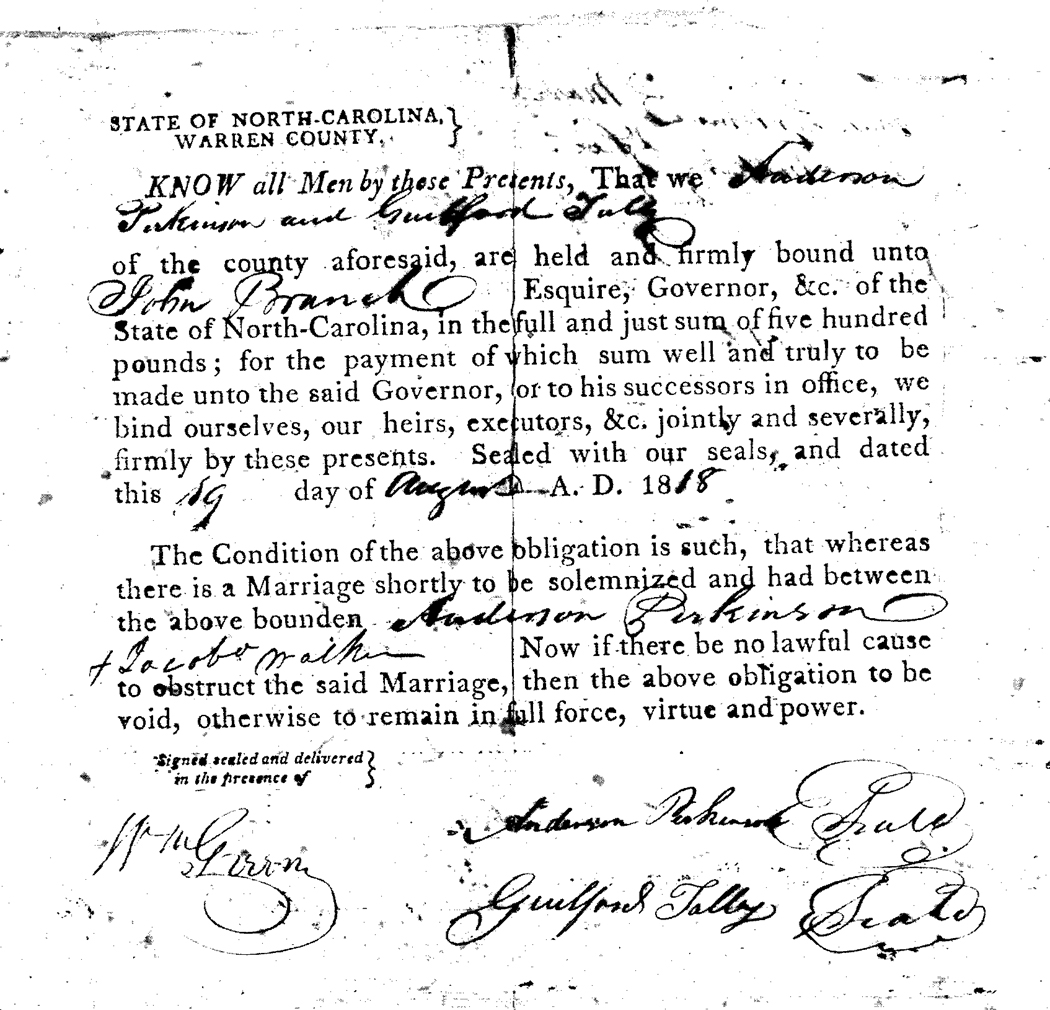 STATE OF NORTH-CAROLINA,
WARREN COUNTY,
KNOW all Men by these Presents, That we Anderson
Perkinson and Guilford Tally
of the county aforesaid, are held and firmly bound unto
John Branch Esquire, Governor, &c. of the
State of North-Carolina, in the full and just sum of five hundred
pounds; for the payment of which sum well and truly to be
made unto the said Governor, or to his successors in office, we
bind ourselves, our heirs, executors, &c. jointly and severally,
firmly by these presents. Sealed with our seals, and dated
this 19 day of August A. D. 1818
The Condition of the above obligation is such, that whereas
there is a Marriage shortly to be solemnized and had between
the above bounden Anderson Perkinson
+ Walker Now if there be no lawful cause
to obstruct the said Marriage, then the above obligation to be
void, otherwise to remain in full force, virtue and power.
Signed sealed and delivered
in the presence of
Anderson Perkinson Seald
Wm Green
Guilford Tally Seald